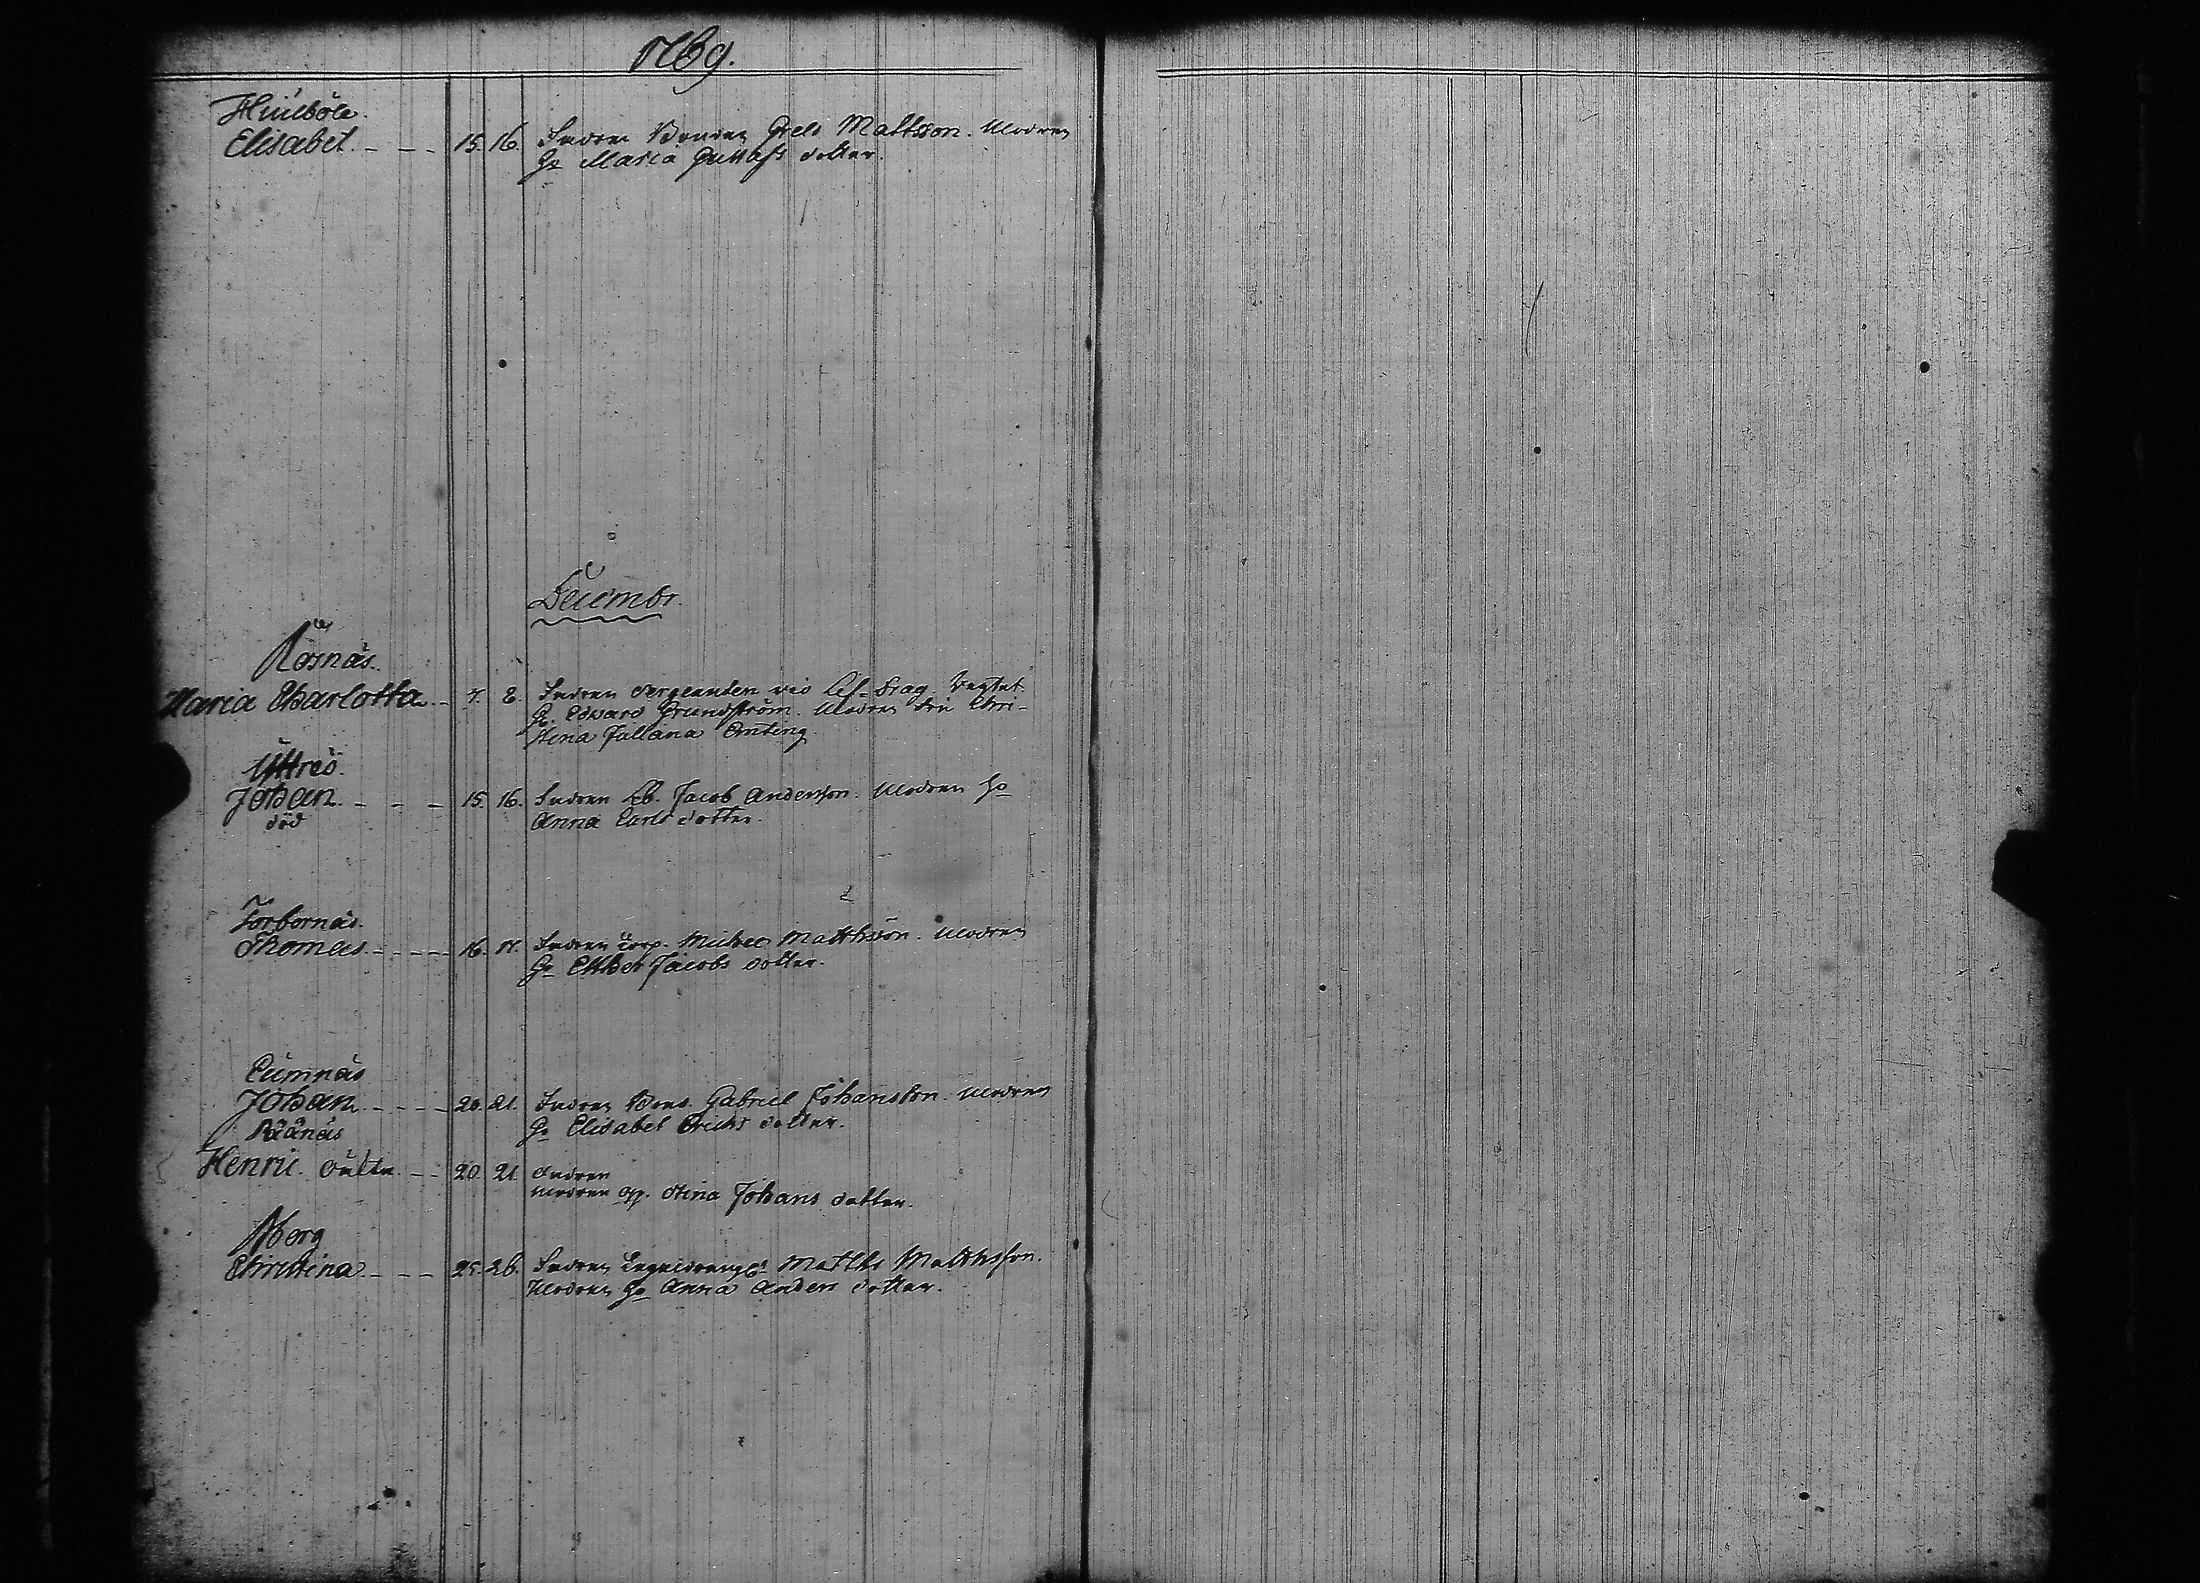 1769.
Elisabet. 15. 16. Fadren Bonden Grels Mattsson. Modren
Ho Maria Gustafs dotter.
Decembr.
Rösnäs.
Maria Charlotta 7. 8. Fadren Sergeanten vid Lif-Drag. Regtet.
Hr. Edvard Grundström. Modren Fru Chri-
stina Juliana
Yttreö.
Johan 15. 16. Fadren Jacob Andersson. Modren Ho
död Anna Carls dotter.
Torbornäs.
Thomas 16. 17. Fadren Corp. Michel Matthsson. Modren
Ho Esther Jacobs dotter.
Johan 20. 21. Fadren Bond. Gabriel Johansson. Modren
Ho Elisabet Erichs dotter.
Räänäs
Henric oäkta 20. 21. Fadren
modren Stina Johans dotter.
Åberg
Christina 25. 26. Fadren Matths Matthsson.
Modren Ho Anna Anders dotter.